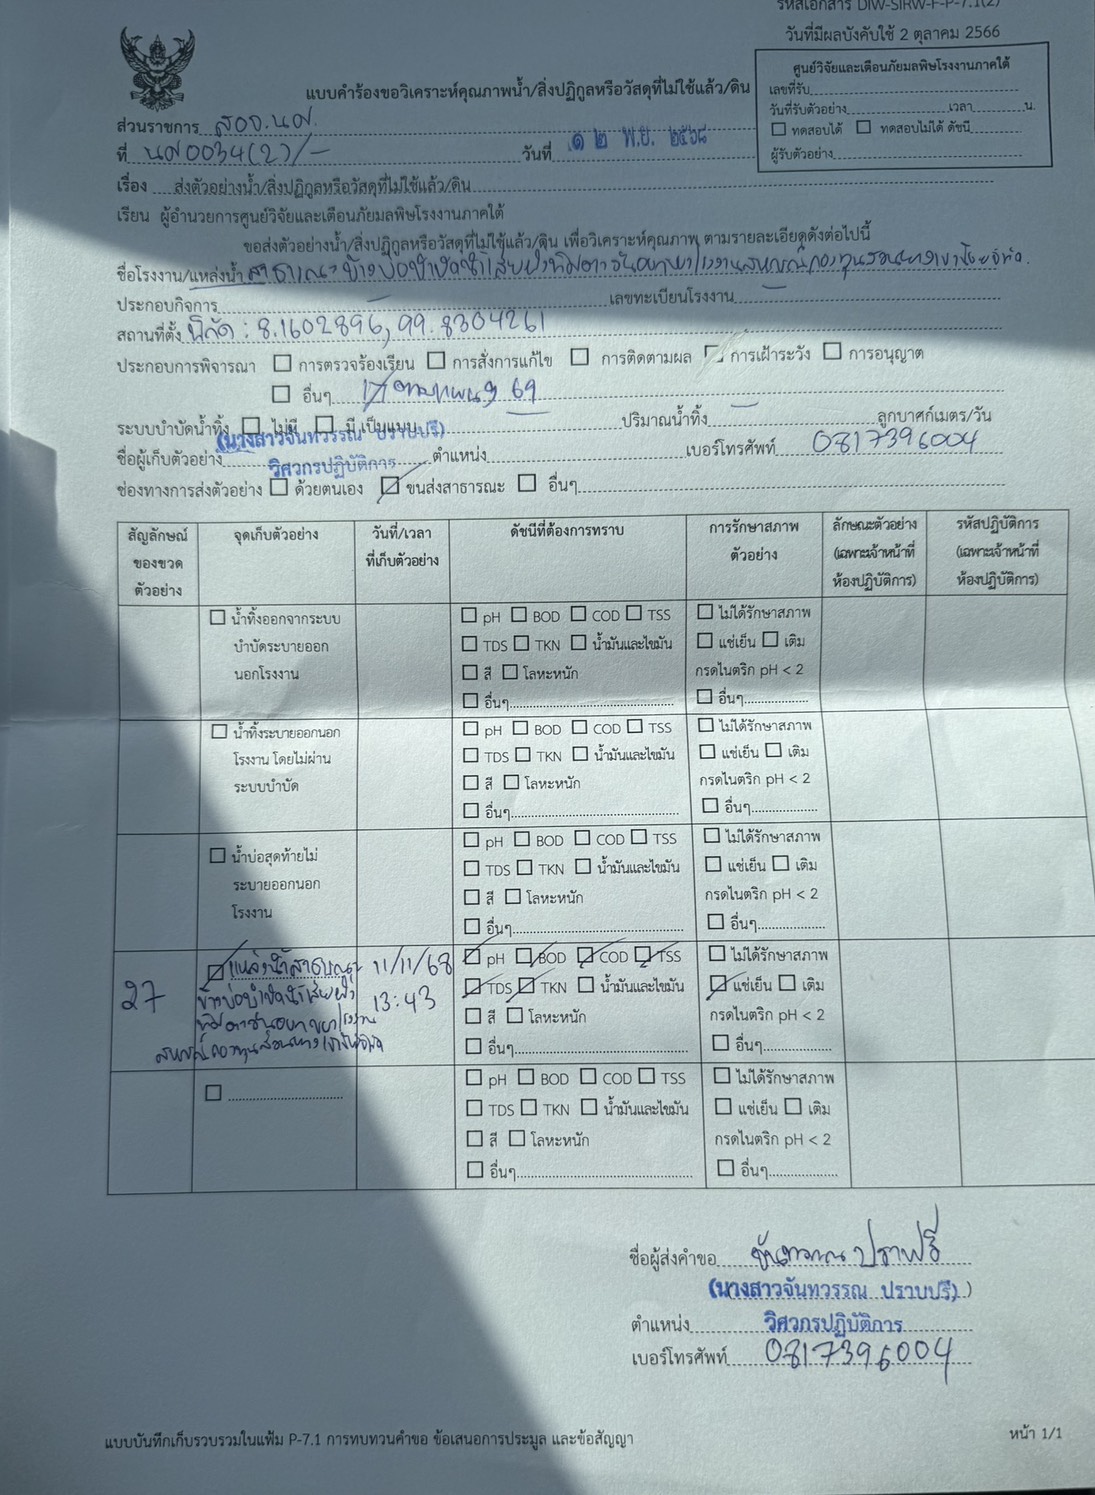 รหัสเอกสาร DIW-SIRW-F-P-7.1(2)
วันที่มีผลบังคับใช้ 2 ตุลาคม 2566
ศูนย์วิจัยและเตือนภัยมลพิษโรงงานภาคใต้
เลขที่รับ
วันที่รับตัวอย่าง เวลา น.
ทดสอบได้ ทดสอบไม่ได้ ดัชนี
ผู้รับตัวอย่าง
แบบคำร้องขอวิเคราะห์คุณภาพน้ำ/สิ่งปฏิกูลหรือวัสดุที่ไม่ใช้แล้ว/ดิน
ส่วนราชการ สอจ.นศ.
ที่ นศ0034(2)/- วันที่ ๑๒ พ.ย. ๒๕๖๘
เรื่อง ส่งตัวอย่างน้ำ/สิ่งปฏิกูลหรือวัสดุที่ไม่ใช้แล้ว/ดิน
เรียน ผู้อำนวยการศูนย์วิจัยและเตือนภัยมลพิษโรงงานภาคใต้
ขอส่งตัวอย่างน้ำ/สิ่งปฏิกูลหรือวัสดุที่ไม่ใช้แล้ว/ดิน เพื่อวิเคราะห์คุณภาพ ตามรายละเอียดดังต่อไปนี้
ชื่อโรงงาน/แหล่งน้ำ สาธารณะข้างบ่อบำบัดน้ำเสียฝั่งทิศตะวันออก
ประกอบกิจการ - เลขทะเบียนโรงงาน -
สถานที่ตั้ง พิกัด : 8.1602896, 99.8304261
ประกอบการพิจารณา การตรวจร้องเรียน การสั่งการแก้ไข การติดตามผล การเฝ้าระวัง การอนุญาต
อื่นๆ 69
ระบบบำบัดน้ำทิ้ง ไม่มี มี เป็นแบบ ปริมาณน้ำทิ้ง - ลูกบาศก์เมตร/วัน
(นางสาวจันทวรรณ ปราบปรี)
ชื่อผู้เก็บตัวอย่าง วิศวกรปฏิบัติการ ตำแหน่ง เบอร์โทรศัพท์ 0817396004
ช่องทางการส่งตัวอย่าง ด้วยตนเอง ขนส่งสาธารณะ อื่นๆ
สัญลักษณ์ของขวดตัวอย่าง จุดเก็บตัวอย่าง วันที่/เวลาที่เก็บตัวอย่าง ดัชนีที่ต้องการทราบ การรักษาสภาพตัวอย่าง ลักษณะตัวอย่าง (เฉพาะเจ้าหน้าที่ห้องปฏิบัติการ) รหัสปฏิบัติการ (เฉพาะเจ้าหน้าที่ห้องปฏิบัติการ)
น้ำทิ้งออกจากระบบ pH BOD COD TSS ไม่ได้รักษาสภาพ
บำบัดระบายออก TDS TKN น้ำมันและไขมัน แช่เย็น เติม
นอกโรงงาน สี โลหะหนัก กรดไนตริก pH < 2
อื่นๆ อื่นๆ
น้ำทิ้งระบายออกนอก pH BOD COD TSS ไม่ได้รักษาสภาพ
โรงงาน โดยไม่ผ่าน TDS TKN น้ำมันและไขมัน แช่เย็น เติม
ระบบบำบัด สี โลหะหนัก กรดไนตริก pH < 2
อื่นๆ อื่นๆ
น้ำบ่อสุดท้ายไม่ pH BOD COD TSS ไม่ได้รักษาสภาพ
ระบายออกนอก TDS TKN น้ำมันและไขมัน แช่เย็น เติม
โรงงาน สี โลหะหนัก กรดไนตริก pH < 2
อื่นๆ อื่นๆ
แหล่งน้ำสาธารณะ 11/11/68 pH BOD COD TSS ไม่ได้รักษาสภาพ
27 ข้างบ่อบำบัดน้ำเสียฝั่ง 13:43 TDS TKN น้ำมันและไขมัน แช่เย็น เติม
สี โลหะหนัก กรดไนตริก pH < 2
อื่นๆ อื่นๆ
pH BOD COD TSS ไม่ได้รักษาสภาพ
TDS TKN น้ำมันและไขมัน แช่เย็น เติม
สี โลหะหนัก กรดไนตริก pH < 2
อื่นๆ อื่นๆ
ชื่อผู้ส่งคำขอ จันทวรรณ ปราบปรี
(นางสาวจันทวรรณ ปราบปรี)
ตำแหน่ง วิศวกรปฏิบัติการ
เบอร์โทรศัพท์ 0817396004
แบบบันทึกเก็บรวบรวมในแฟ้ม P-7.1 การทบทวนคำขอ ข้อเสนอการประมูล และข้อสัญญา
หน้า 1/1